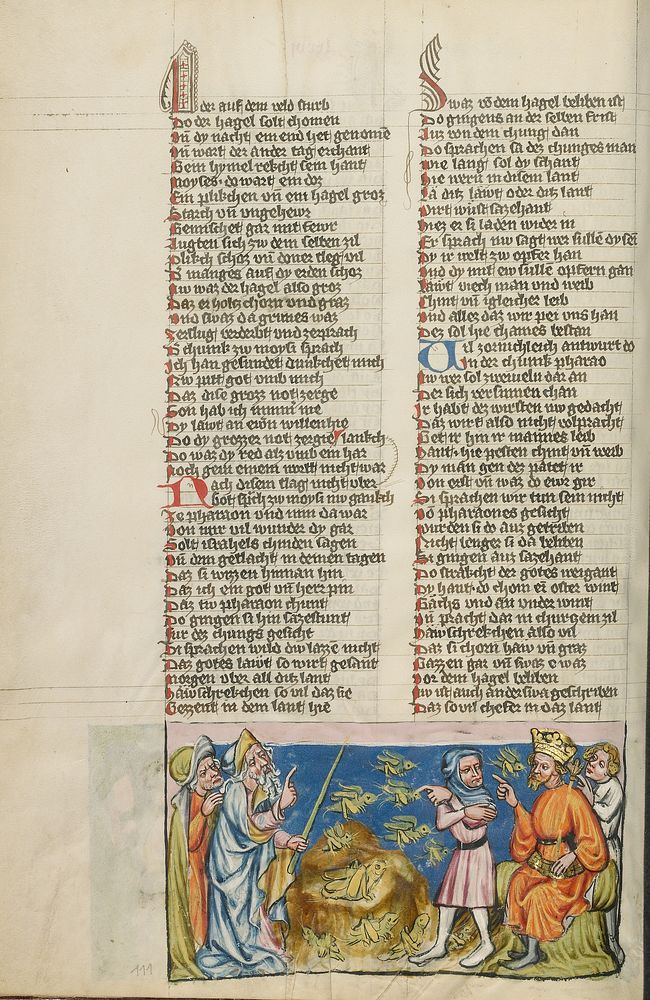 der auf dem veld sturb
Do der hagel solt chomen
Vñ dy nacht ein end het genomē
Vñ wart der ander tag erchant
Gein hymel rekcht sein hant
Moyses do wart ein doz
Ein plikchen vñ ein hagel groz
Starch vñ vngehewr
Gemischet gar mit fewr
Augten sich zw dem selben zil
Plikch schoz vñ doner sleg vil
manges auf dy erden schoz
Nw waz der hagel also groz
Daz er holcz chorn vnd graz
Vnd swaz da grünes waz
Zerslug verderbt vnd zerprach
D chunik zw moysi sprach
Ich han gesundet dunkchet mich
Nw pitt got vmb mich
Daz dise grozz not zerge
Son hab ich nimm me
Dy läwt an ewrn willen hie
Do dy grozzer not zergie
Do waz dy red als vmb ein har
Noch gein einem wort nicht war
Nach disem slag nicht vber
Got sprich zw moysi nw gankch
Ze pharaon vnd nim da war
Von mir vil wunder dy gar
Solt israhels chinden sagen
Vñ dem geslächt in deinen tagen
Daz si wizzen hinnan hin
Daz ich ein got vñ herr pin
Daz tw pharaon chunt
Do gingen si hin sazestunt
Für des chungs gesicht
Si sprachen wild dw lazzē nicht
Daz gotes läwt so wirt gesant
Morgen vber all ditz lant
Häwschrekchen so vil daz sie
Gezzent in dem lant hie
Swaz vō dem hagel beliben ist
Do gingens an der selben frist
Auz von dem chunig dan
Do sprachen sa dez chunges man
Wie lang sol dy schant
Hie wern in disem lant
La ditz läwt oder ditz lant
Wirt wüst sazehant
Hiez er si laden wider in
Er sprach nw sagt wer sullē dy sein
Dy ir welt zw opfer han
Vnd dy mit ew sullē opfern gan
Läwt viech man vnd weib
Chint vñ igleicher leib
Vnd allez daz wir pei vns han
Dez sol hie chaines bestan
Vil zornichleich antwurt do
In der chunik pharao
Nw wer sol zweiueln dar an
Der sich versinnen chan
Ir habt dez wirsten nw gedacht
Daz wirt also nicht volpracht
Get ir hin ir mannes leib
Lant hie pesten chint vñ weib
Dy man gen dez pätet ir
Von erst vñ waz do ewr gir
Si sprachen wir tun sein nicht
Vō pharaones gesicht
Wurden si do auz getriben
Nicht lenger si da beliben
Si gingen auz sazehant
Do strakcht der gotes weigant
Dy hant do chom ein oster wint
Gächs vnd ein vnder wint
Vñ pracht dar in churczem zil
Häwschrekchen also vil
Daz si chorn häw vñ graz
Gazzen gar vñ swaz e waz
Vor dem hagel beliben
Nw ist auch anderswa geschriben
Daz so vil chefer in daz lant
111